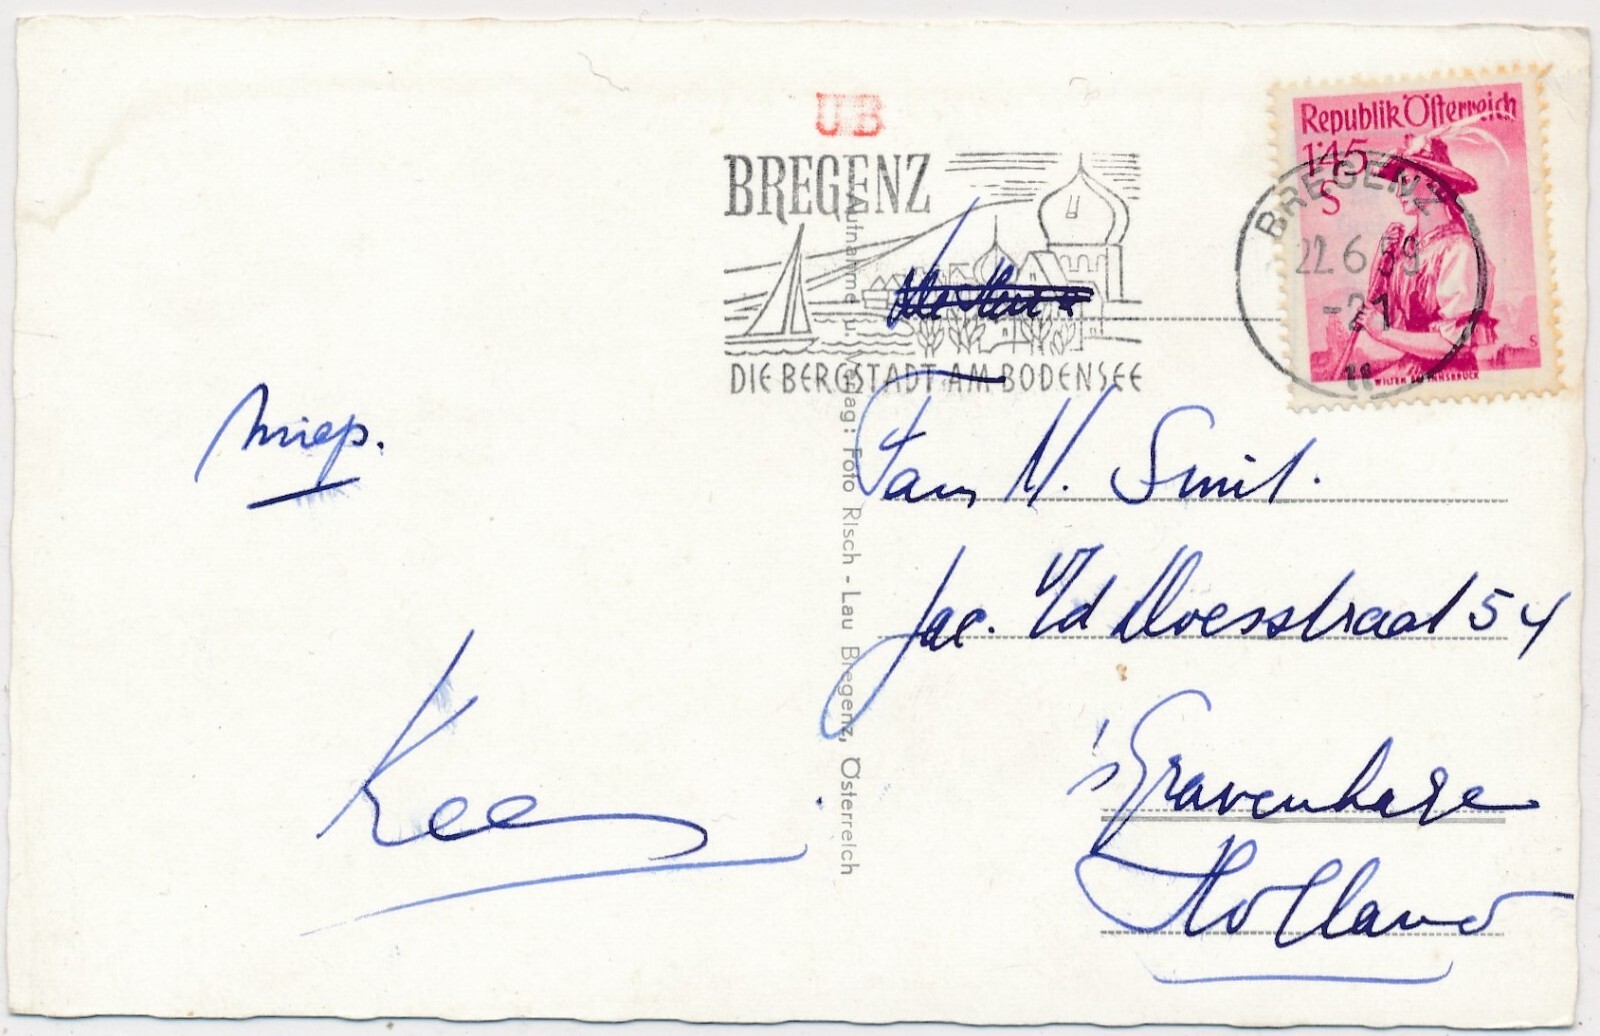 UB
BREGENZ
DIE BERGSTADT AM BODENSEE
Republik Österreich
1'45
S
WILTEN BEI INNSBRUCK
BREGENZ
22.6.59
-21
Miep.
Kees
Aufnahme u. Verlag: Foto Risch - Lau Bregenz, Österreich
Fam N. Smit.
Jac. v/d Doesstraat 54
's Gravenhage
Holland